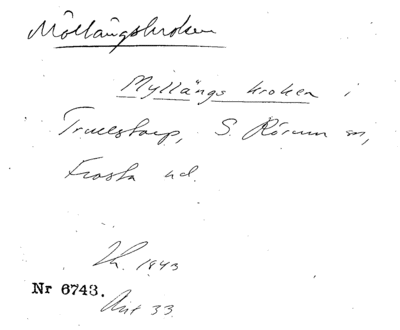 Möllängskroken
Myllängs kroken i
Truelstorp, S. Rörum sn,
Frosta hd.
1943
Nr 6743.
33